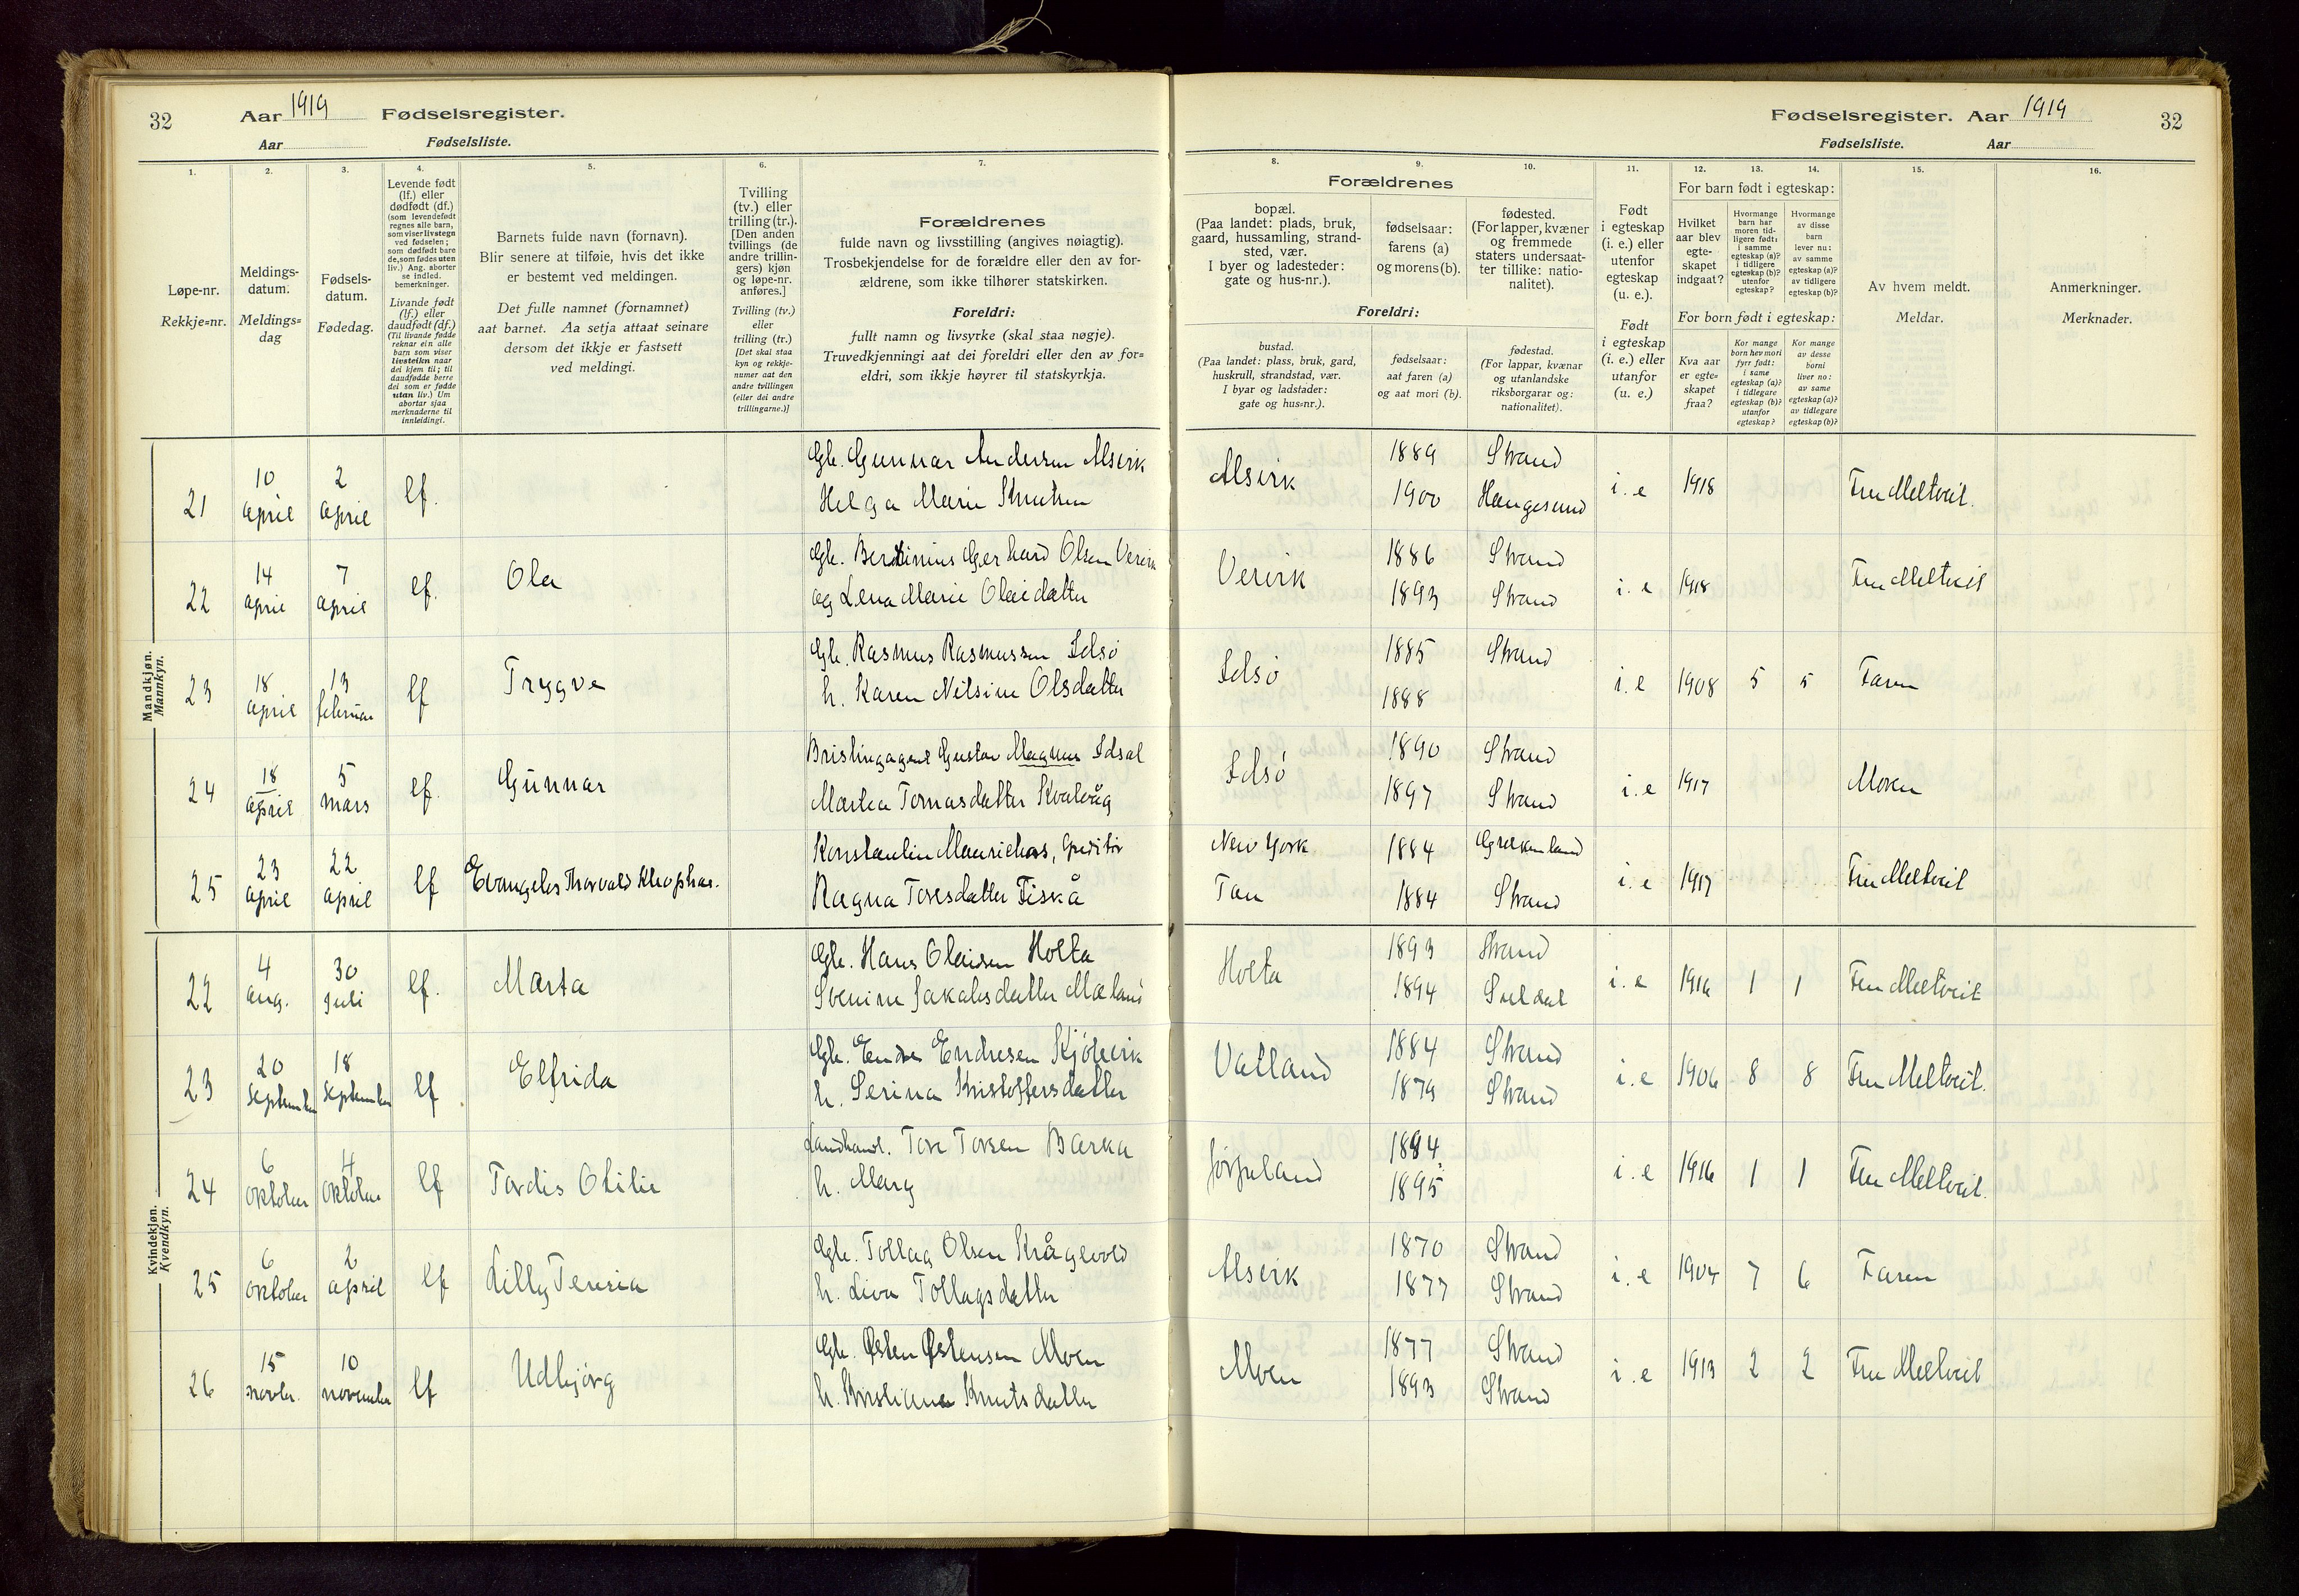 32
Aar 1919 Fødselsregister.
Aar Fødselsliste.
1.
2.
3.
4.
5.
6.
7.
Løpe-nr.
Rekkje=nr.
Meldings-
datum.
Meldings=
dag
Fødsels-
datum.
Fødedag.
Levende født
(lf.) eller
dødfødt (df.)
(som levendefødt
regnes alle barn,
som viser livstegn
ved fødselen;
som dødfødt bare
de, som fødes uten
liv.) Ang. aborter
se indled.
bemerkninger.
Livande født
(lf.) eller
daudfødt (df.)
(Til livande fødde
reknar ein alle
barn som viser
livsteikn naar
dei kjem til; til
daudfødde berre
dei som er fødde
utan liv.) Um
abortar sjaa
merknaderne til
innleidingi.
Barnets fulde navn (fornavn).
Blir senere at tilføie, hvis det ikke
er bestemt ved meldingen.
Det fulle namnet (fornamnet)
aat barnet. Aa setja attaat seinare
dersom det ikkje er fastsett
ved meldingi.
Tvilling
(tv.) eller
trilling (tr.).
[Den anden
tvillings (de
andre trillin-
gers) kjøn
og løpe-nr.
anføres.]
Tvilling (tv.)
eller
trilling (tr.)
[Det skal staa
kyn og rekkje-
numer aat den
andre tvillingen
(eller dei andre
trillingarne.)]
Forældrenes
fulde navn og livsstilling (angives nøiagtig).
Trosbekjendelse for de forældre eller den av for-
ældrene, som ikke tilhører statskirken.
Foreldri:
fullt namn og livsyrke (skal staa nøgje).
Truvedkjenningi aat dei foreldri eller den av for=
eldri, som ikkje høyrer til statskyrkja.
Mandkjøn.
Mannkyn.
21 10 april 2 april lf. Gbr. Gunnar Andersen Alsvik
Helga Marie Knutsen
22 14 april 7 april lf. Ola Gbr. Berdinius Gerhard Olsen Vervik
og Lena Marie Olaidatter
23 18 april 13 februar lf Trygve Gbr. Rasmus Rasmussen Idsø
h. Karen Nilsine Olsdatter
24 18 april 5 mars lf. Gunnar Brislingagent Gustav Magnus Idsal
Martha Tomasdatter Kvalvåg
25 23 april 22 april lf Evangelos Thorvald Kleophas. Konstantin Maurichos,
Ragna Toresdatter Fiskå
Kvindekjøn.
Kvendkyn.
22 4 aug. 30 juli lf. Marta Gbr. Hans Olaisen Holta
Svenine Jakobsdatter Mæland
23 20 september 18 september lf Elfrida Gbr. Endre Endresen Skjølvik
h. Serina Kristoffersdatter
24 6 oktober 4 oktober lf Tordis Otilie Landhandl. Tore Toresen Barka
h. Mary
25 6 oktober 2 april lf Lilly Teresia Gbr. Tollag Olsen Krågevold
h. Liva Tollagsdatter
26 15 novbr. 10 november lf Udbjørg Gbr. Østen Østensen Moen
h. Kristiane Knutsdatter
Fødselsregister. Aar 1919
32
Fødselsliste. Aar
8.
9.
10.
11.
12.
13.
14.
15.
16.
Forældrenes
bopæl.
(Paa landet: plads, bruk,
gaard, hussamling, strand-
sted, vær.
I byer og ladesteder:
gate og hus-nr.).
fødselsaar:
farens (a)
og morens (b).
fødested.
(For lapper, kvæner
og fremmede
staters undersaat-
ter tillike: natio-
nalitet).
Foreldri:
bustad.
(Paa landet: plass, bruk, gard,
huskrull, strandstad, vær.
I byar og ladstader:
gate og hus=nr.).
fødselsaar:
aat faren (a)
og aat mori (b).
fødestad.
(For lappar, kvænar
og utanlandske
riksborgarar og:
nationalitet).
Født
i egteskap
(i. e.) eller
utenfor
egteskap
(u. e.).
Født
i egteskap
(i. e.) eller
utanfor
(u. e.)
For barn født i egteskap:
Hvilket
aar blev
egte-
skapet
indgaat?
Hvormange
barn har
moren tid-
ligere født:
i samme
egteskap (a)?
i tidligere
egteskap (b)?
utenfor
egteskap?
Hvormange
av disse
barn
lever nu:
av samme
egteskap (a)?
av tidligere
egteskap (b)?
For born født i egteskap:
Kva aar
er egte=
skapet
fraa?
Kor mange
born hev mori
fyrr født:
i same
egteskap (a)?
i tidlegare
egteskap (b)?
utanfor
egteskap?
Kor mange
av desse
borni
liver no:
av same
egteskap (a)?
av tidlegare
egteskap (b)?
Av hvem meldt.
Meldar.
Anmerkninger.
Merknader.
Alsvik 1889 Strand i. e 1918 Fru Meltveit.
1900 Haugesund
Vervik 1886 Strand i. e 1918 Fru Meltveit
1893 Strand
Idsø 1885 Strand i. e 1908 5 5 Faren
1888
Idsø 1890 Strand i. e 1917 Moren
1897 Strand
New York 1884 Grækenland i. e 1917 Fru Meltveit
Tau 1884 Strand
Holta 1893 Strand i. e 1916 1 1 Fru Meltveit
1894 Suldal
Vatland 1884 Strand i. e 1906 8 8 Fru Meltveit.
1879 Strand
Jørpeland 1894 i. e 1916 1 1 Fru Meltveit.
1895
Alsvik 1870 Strand i. e 7 6 Faren
1877 Strand
Moen 1877 Strand i. e 1913 2 2 Fru Meltveit
1893 Strand